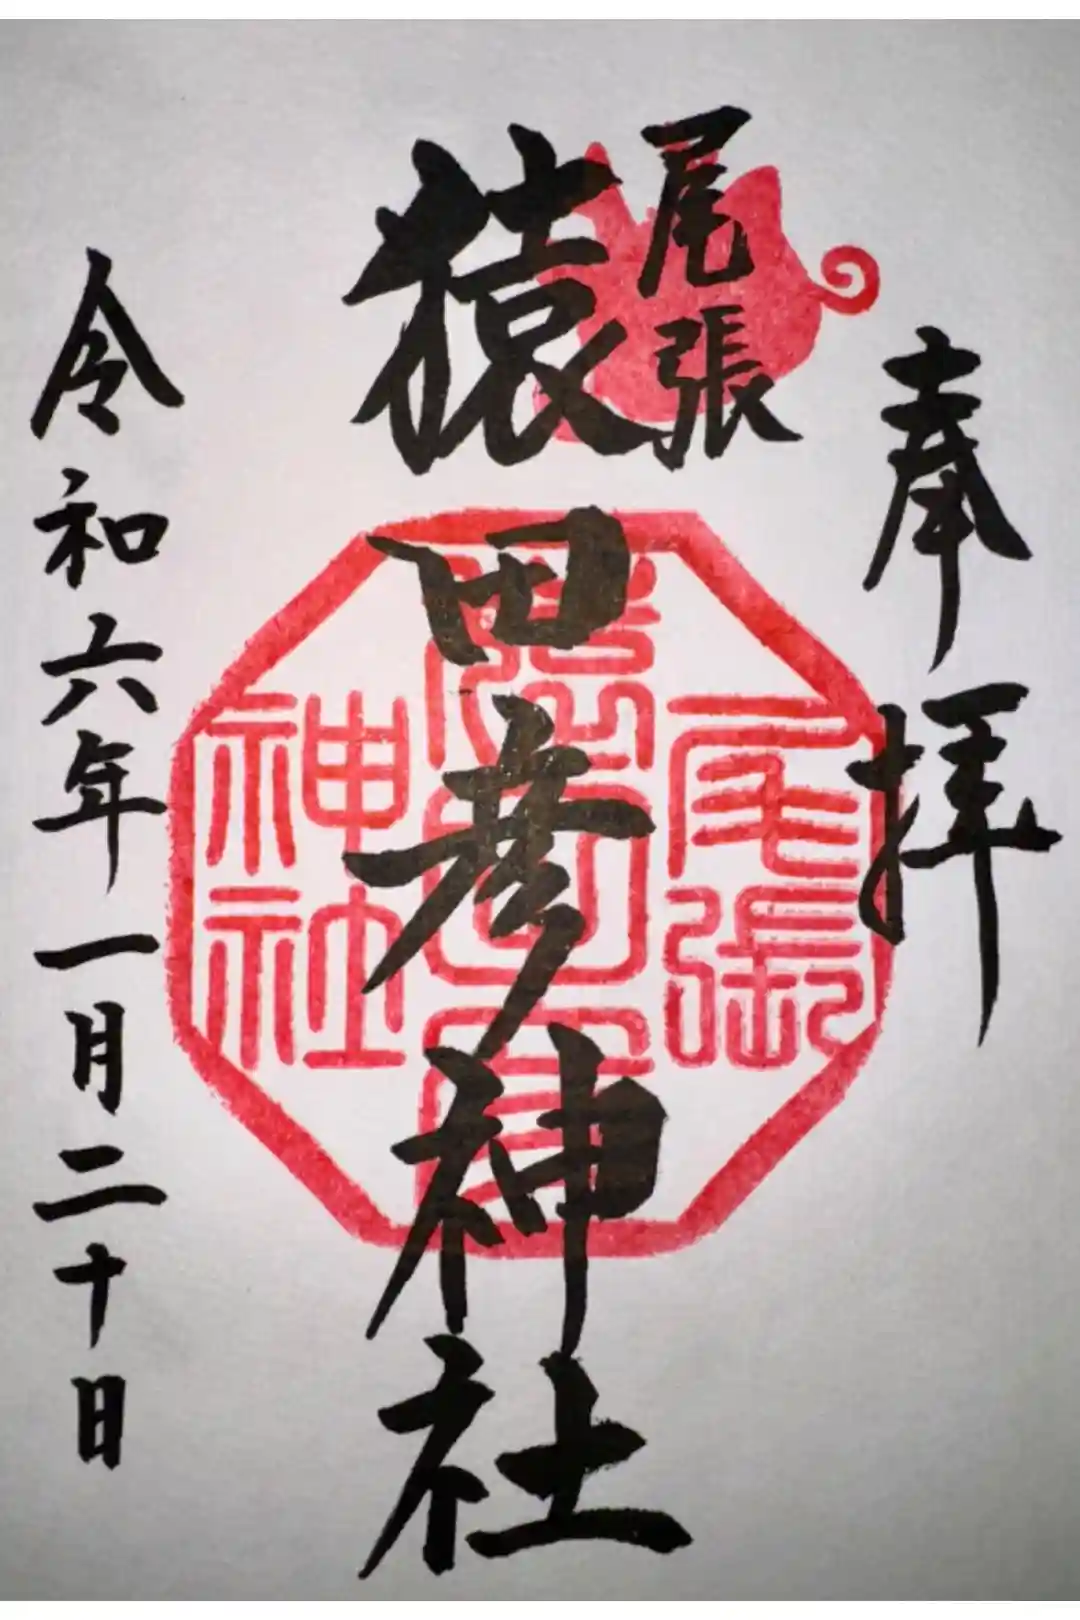 奉拝
尾張
猿田彦神社
令和六年一月二十日
尾張
神社